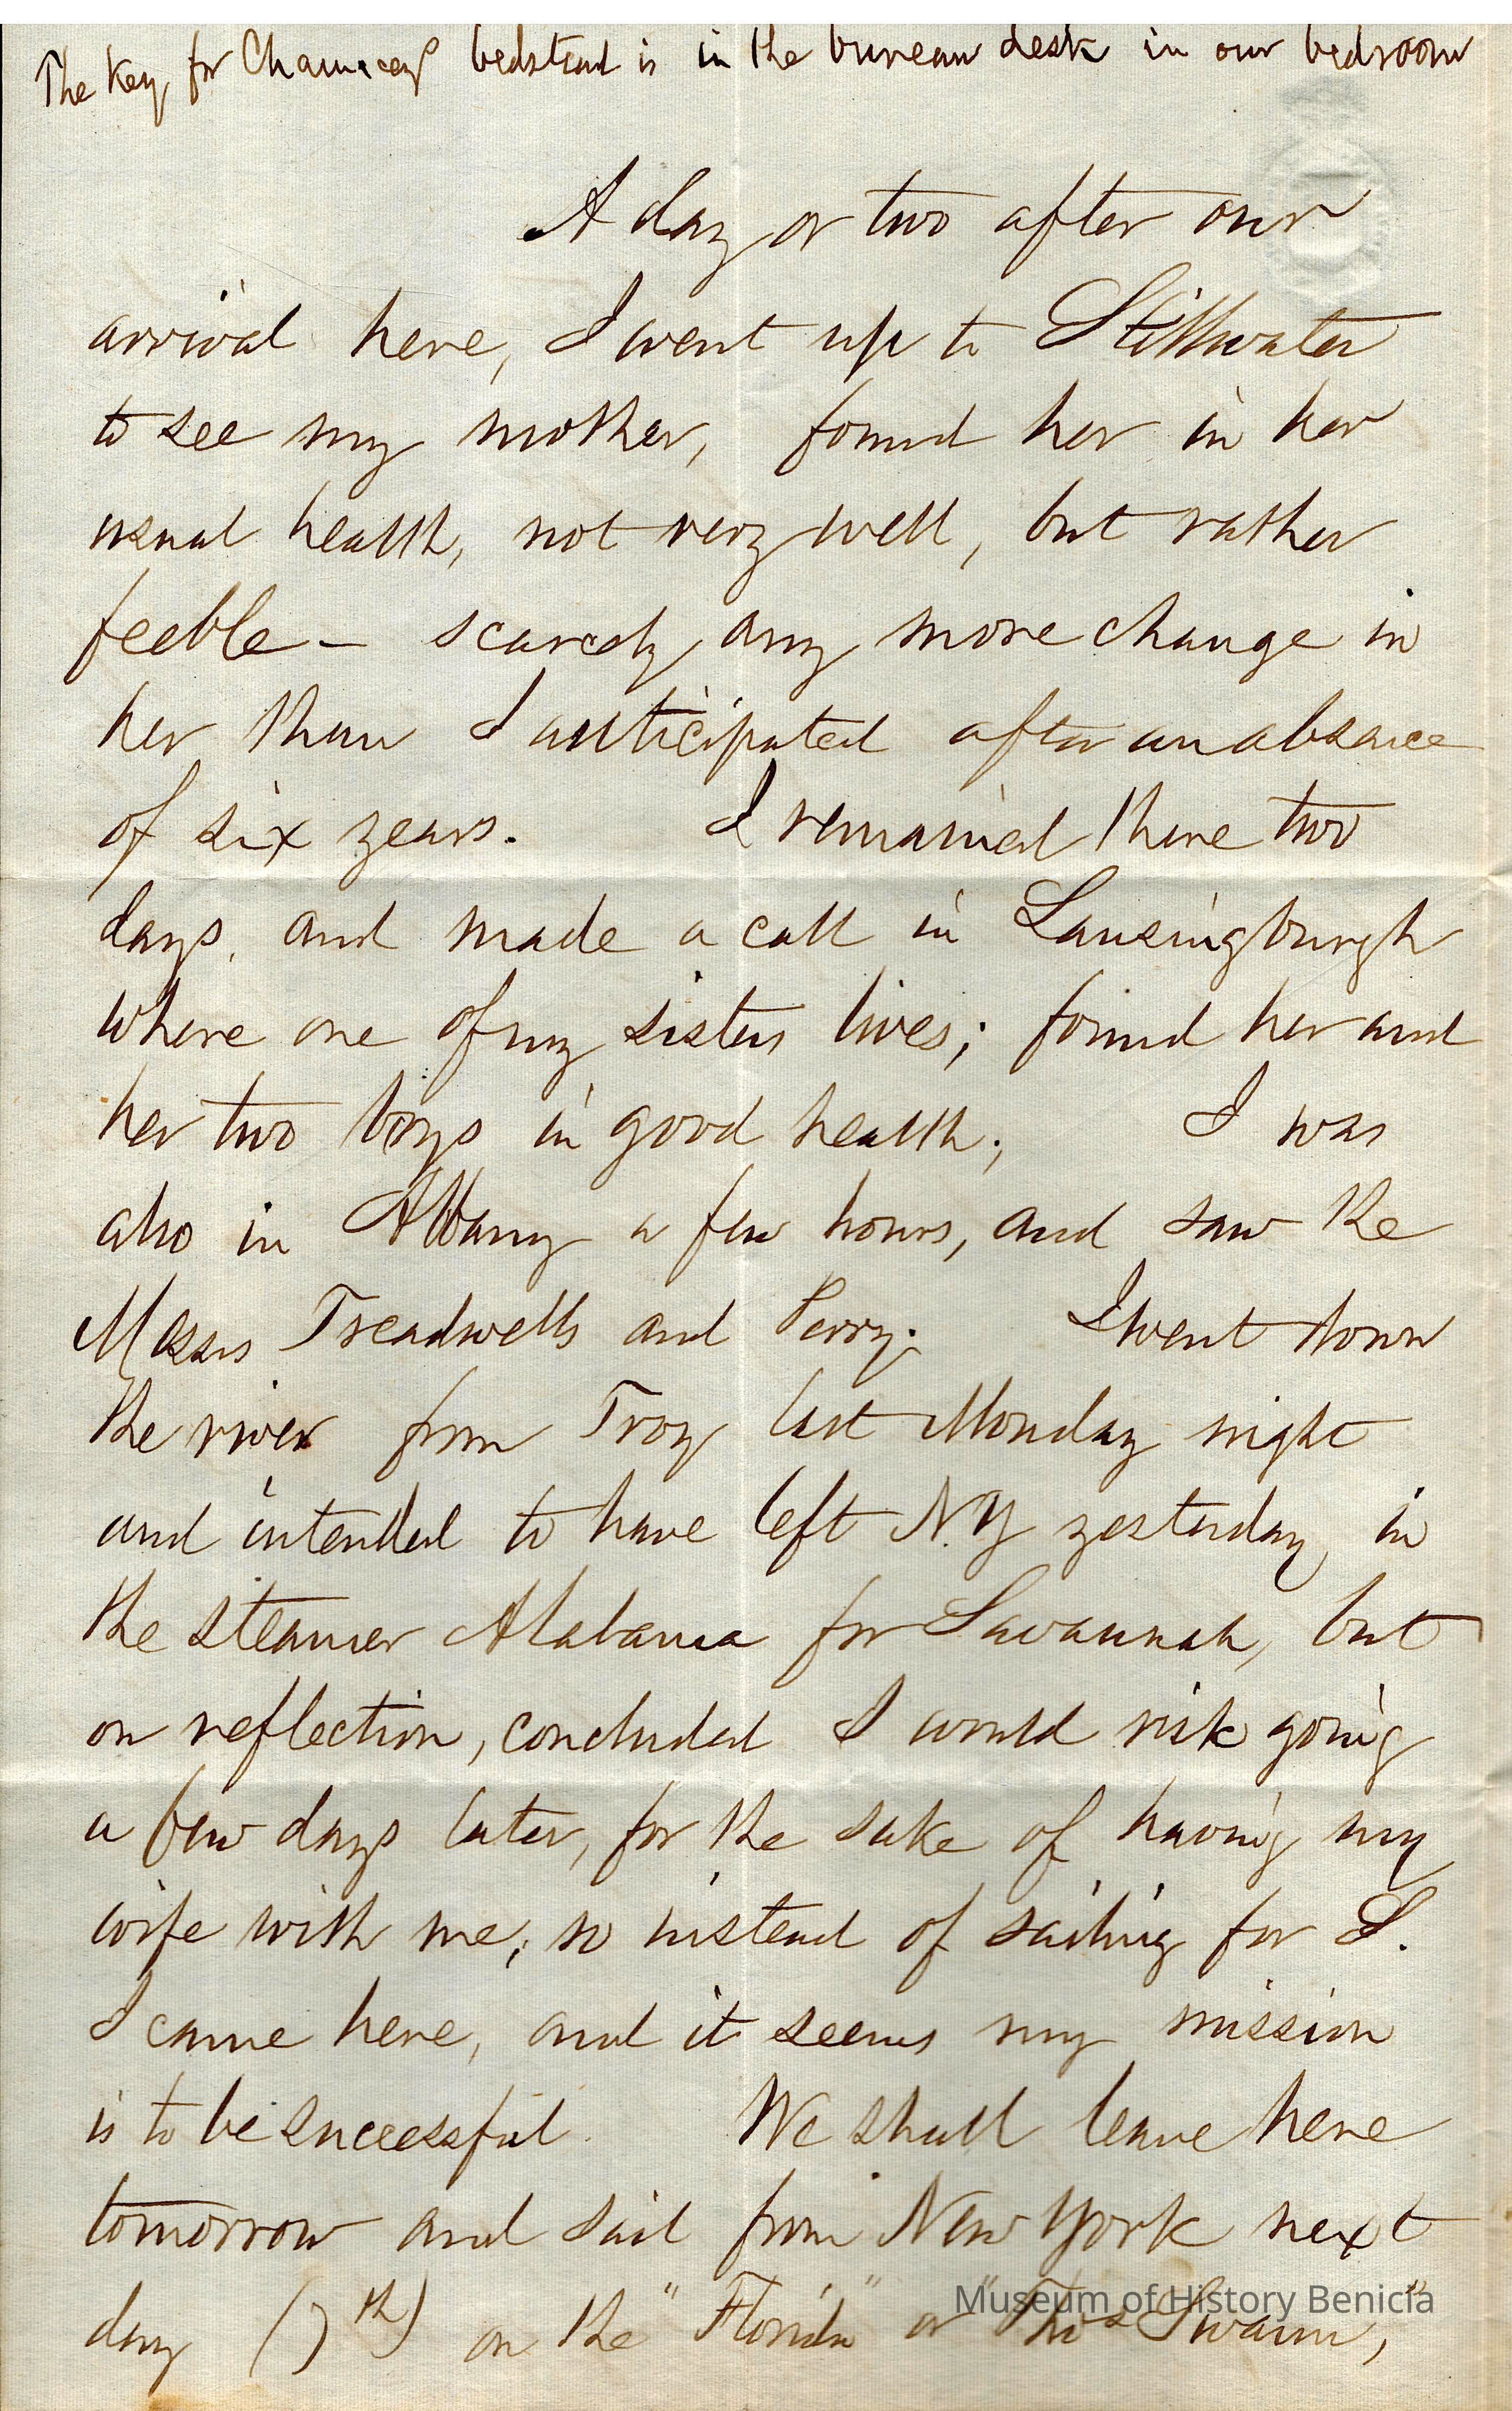 The key for Chaunceys bedstead is in the bureau desk in our bedroom
A day or two after our
arrival here, I went up to Stillwater
to see my mother, found her in her
usual health, not very well, but rather
feeble — scarcely any more change in
her than I anticipated after an absence
of six years. I remained there two
days, and made a call in Lansingburgh
where one of my sisters lives; found her and
her two boys in good health; I was
also in Albany a few hours, and saw the
Messrs Treadwells and Perry. I went down
the river from Troy last Monday night
and intended to have left N.Y yesterday, in
the steamer Alabama for Savannah, but
on reflection, concluded I would risk going
a few days later, for the sake of having my
wife with me; so instead of sailing for S.
I came here, and it seems my mission
is to be successful. We shall leave here
tomorrow and sail from New York next
day (7th) on the "Florida" or "Thos Swann,"
Museum of History Benicia